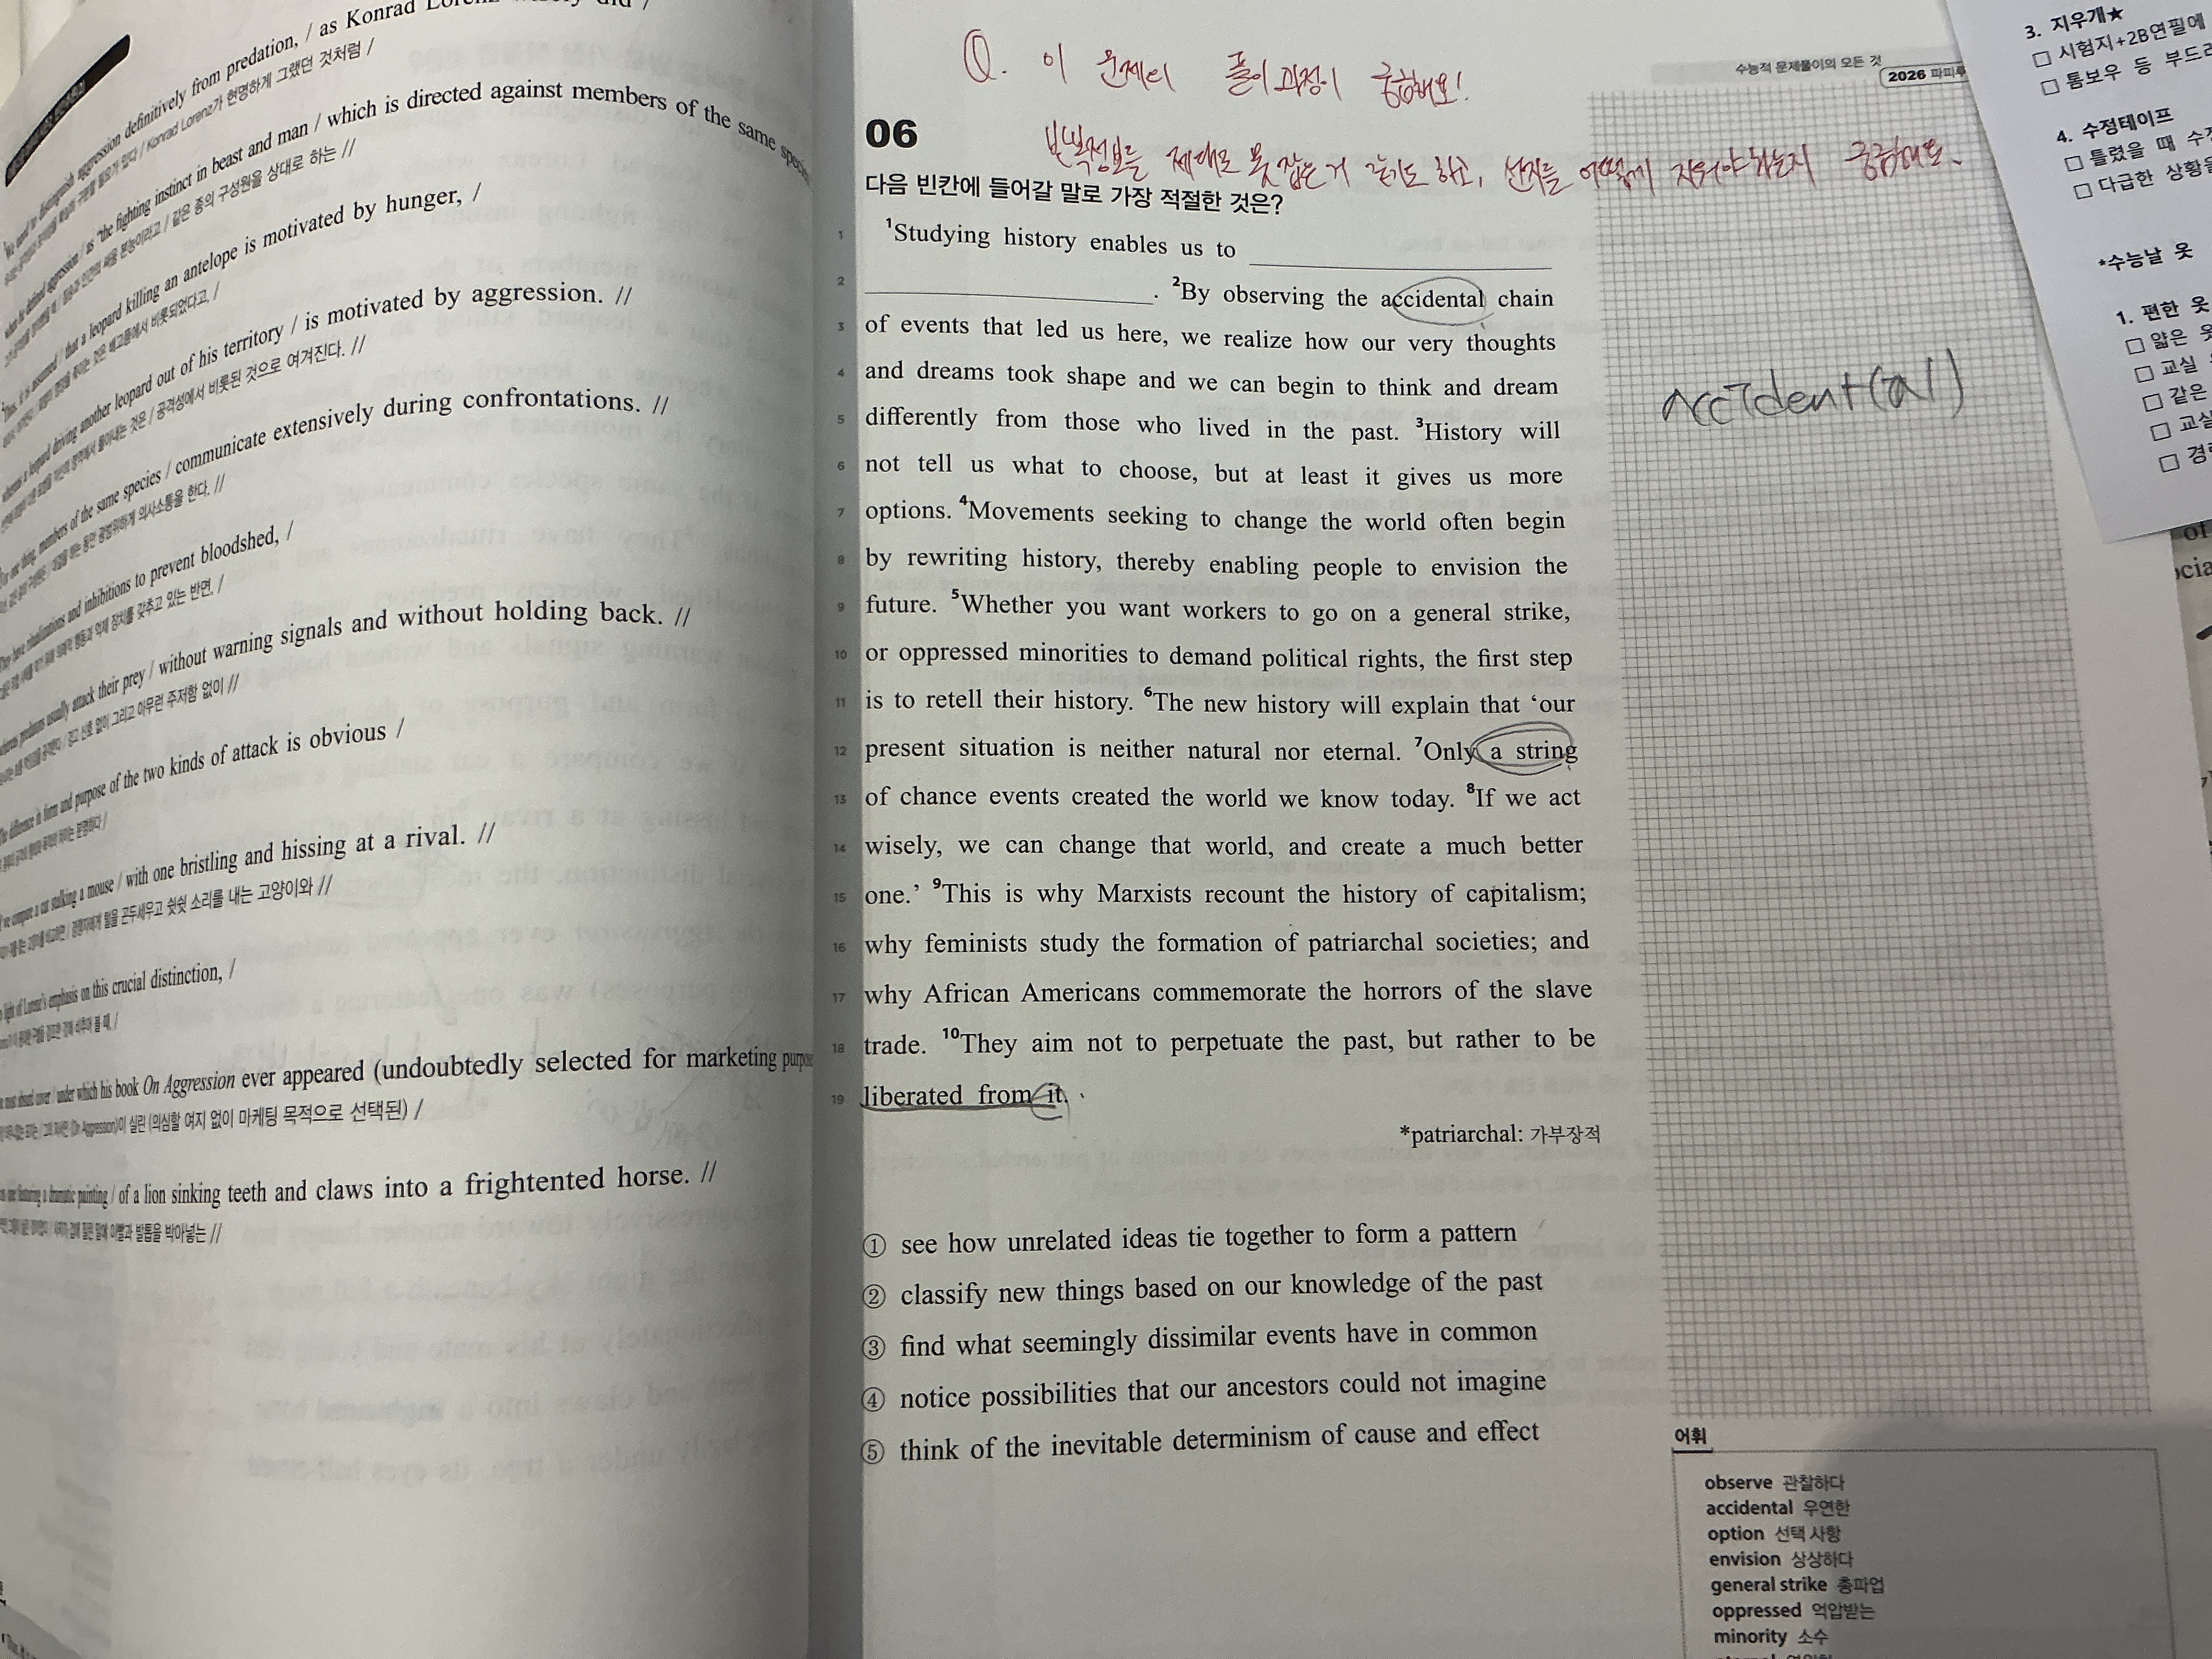 definitively from predation, / as Konrad
Konrad Lorenz가 현명하게 그랬던 것처럼 /
the fighting instinct in beast and man / which is directed against members of the same species
같은 종의 구성원을 상대로 하는 //
that a leopard killing an antelope is motivated by hunger, /
배고픔에서 비롯되었다고, /
leopard driving another leopard out of his territory / is motivated by aggression. //
공격성에서 비롯된 것으로 여겨진다. //
members of the same species / communicate extensively during confrontations. //
광범위하게 의사소통을 한다. //
and inhibitions to prevent bloodshed, /
억제 장치를 갖추고 있는 반면, /
usually attack their prey / without warning signals and without holding back. //
경고 신호 없이 그리고 아무런 주저함 없이 //
difference in form and purpose of the two kinds of attack is obvious /
compare a cat stalking a mouse / with one bristling and hissing at a rival. //
털을 곤두세우고 쉿쉿 소리를 내는 고양이와 //
emphasis on this crucial distinction, /
under which his book On Aggression ever appeared (undoubtedly selected for marketing
(On Aggression)이 실린 (의심할 여지 없이 마케팅 목적으로 선택된) /
painting / of a lion sinking teeth and claws into a frightened horse. //
이빨과 발톱을 박아넣는 //
Q. 이 문제의 풀이 과정이 궁금해요!
수능적 문제풀이의 모든 것
2026 파피루
06
반복정보를 제대로 못 잡은 거 같기도 하고, 선지를 어떻게 지워야 하는지 궁금해요.
다음 빈칸에 들어갈 말로 가장 적절한 것은?
1 ¹Studying history enables us to
2 . ²By observing the accidental chain
3 of events that led us here, we realize how our very thoughts
4 and dreams took shape and we can begin to think and dream
5 differently from those who lived in the past. ³History will
6 not tell us what to choose, but at least it gives us more
7 options. ⁴Movements seeking to change the world often begin
8 by rewriting history, thereby enabling people to envision the
9 future. ⁵Whether you want workers to go on a general strike,
10 or oppressed minorities to demand political rights, the first step
11 is to retell their history. ⁶The new history will explain that ‘our
12 present situation is neither natural nor eternal. ⁷Only a string
13 of chance events created the world we know today. ⁸If we act
14 wisely, we can change that world, and create a much better
15 one.’ ⁹This is why Marxists recount the history of capitalism;
16 why feminists study the formation of patriarchal societies; and
17 why African Americans commemorate the horrors of the slave
18 trade. ¹⁰They aim not to perpetuate the past, but rather to be
19 liberated from it.
*patriarchal: 가부장적
accident(al)
① see how unrelated ideas tie together to form a pattern
② classify new things based on our knowledge of the past
③ find what seemingly dissimilar events have in common
④ notice possibilities that our ancestors could not imagine
⑤ think of the inevitable determinism of cause and effect
어휘
observe 관찰하다
accidental 우연한
option 선택 사항
envision 상상하다
general strike 총파업
oppressed 억압받는
minority 소수
3. 지우개★
□ 시험지+2B연필에
□ 톰보우 등 부드러
4. 수정테이프
□ 틀렸을 때 수정
□ 다급한 상황을
*수능날 옷
1. 편한 옷
□ 얇은 옷
□ 교실
□ 같은
□ 교실
□ 경